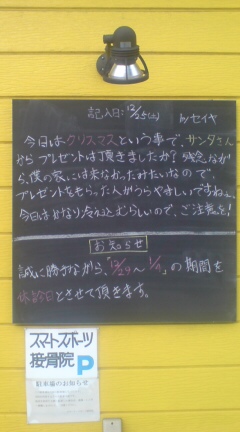 記入日:12/25(土) byセイヤ
今日はクリスマスという事で、サンタさん
からプレゼントは頂きましたか?残念なが
ら、僕の家には来なかったみたいなので、
プレゼントをもらった人がうらやましいですねぇ。
今日はかなり冷え込むらしいので、ご注意を!
お知らせ
誠に勝手ながら、「12/29〜1/3」の期間を
休診日とさせて頂きます。
スマートスポーツ
接骨院 P
駐車場のお知らせ